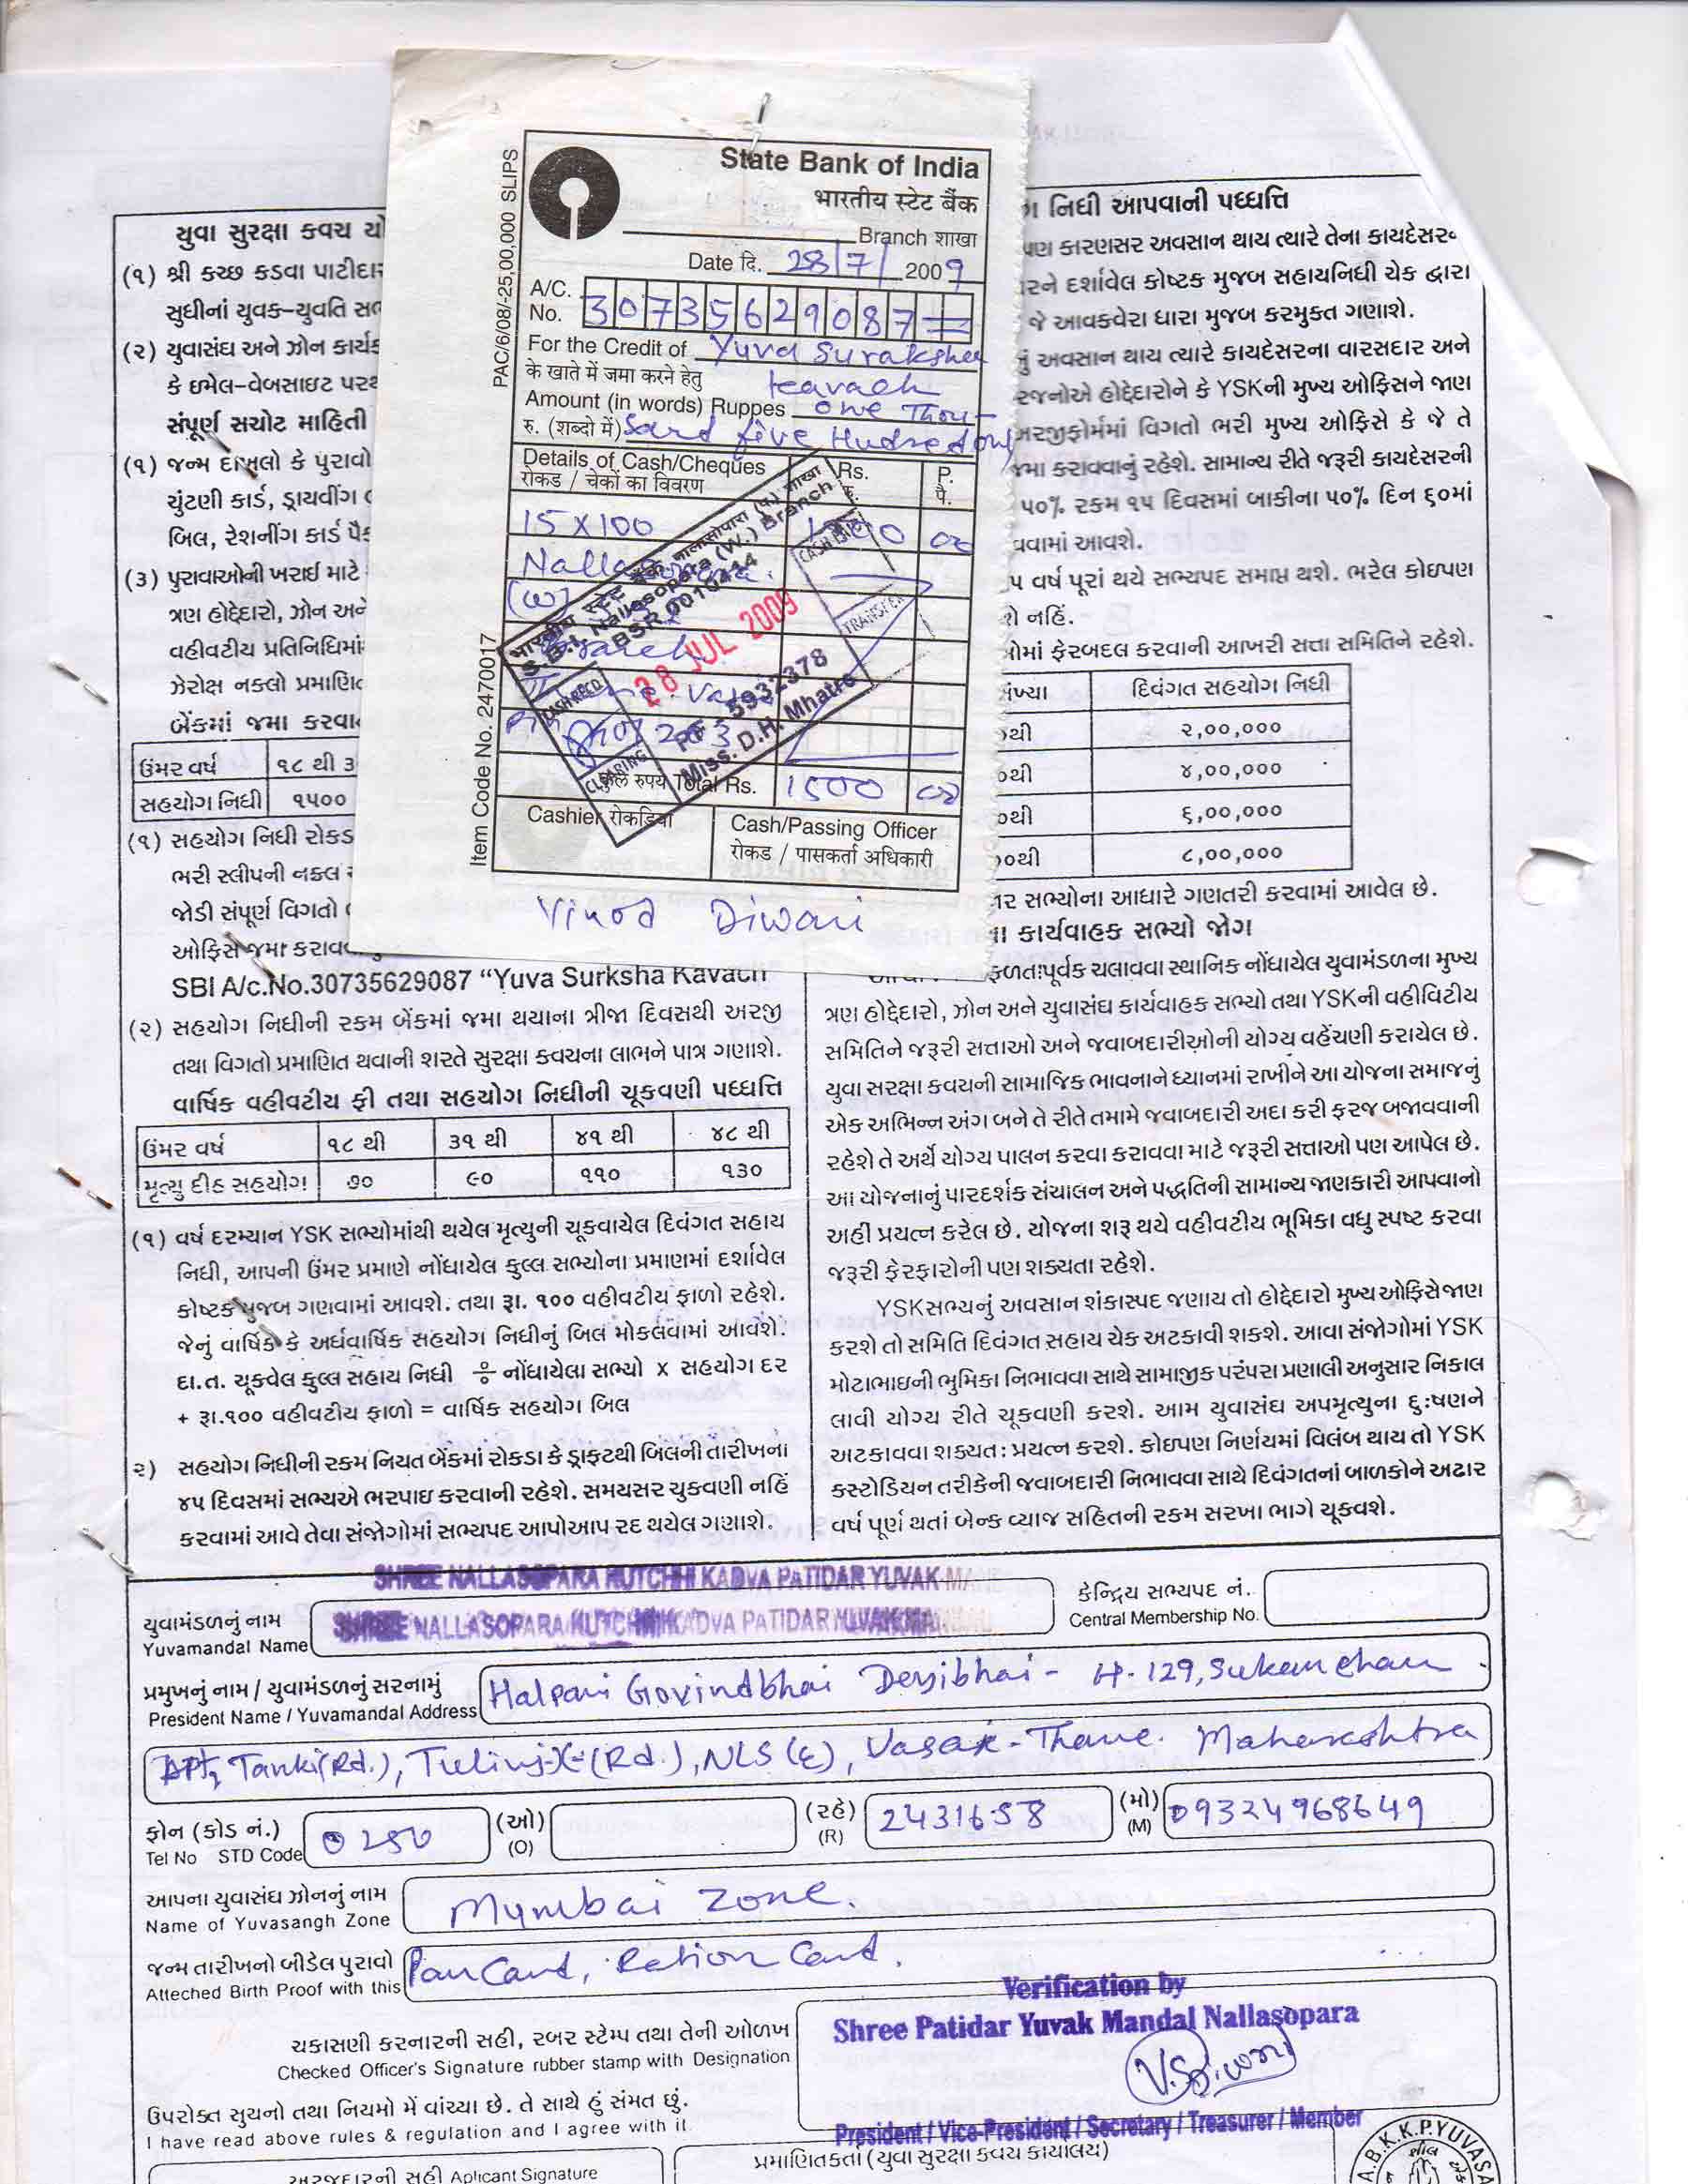 State Bank of India
भारतीय स्टेट बैंक
Branch शाखा
Date दि. 28/7/2009
A/C. No. 30735629087
For the Credit of Yuva Suraksha
के खाते में जमा करने हेतु
Amount (in words) Ruppes one Thou-
रु. (शब्दो में) Sand five Hudredony
Details of Cash/Cheques Rs. P.
रोकड / चेकों का विवरण रु. पै.
15 X 100 00
Nalla
(W)
S.B.I. Nallasopara (W.) Branch
28 JUL 2009
PF - 5932378
Miss. D.H. Mhatre
CASH RECD.
CLEARING
TRANSFER
कुल रुपये Total Rs. 1500 00
Cashier रोकडिया
Cash/Passing Officer
रोकड / पासकर्ता अधिकारी
PAC/6/08/-25,00,000 SLIPS
Item Code No. 2470017
Vinod Diwani
યુવા સુરક્ષા કવચ યો
(૧) શ્રી કચ્છ કડવા પાટીદાર
સુધીનાં યુવક-યુવતિ સ
(૨) યુવાસંઘ અને ઝોન કાર્ય
કે ઇમેલ-વેબસાઇટ પર
સંપૂર્ણ સચોટ માહિતી
(૧) જન્મ દાખલો કે પુરાવો
ચુંટણી કાર્ડ, ડ્રાયવીંગ
બિલ, રેશનીંગ કાર્ડ પૈ
(૩) પુરાવાઓની ખરાઈ માટે
ત્રણ હોદ્દેદારો, ઝોન અને
વહીવટીય પ્રતિનિધિમાં
ઝેરોક્ષ નકલો પ્રમાણિ
બેંકમાં જમા કરવા
ઉંમર વર્ષ ૧૮ થી ૩
સહયોગ નિધી ૧૫૦૦
(૧) સહયોગ નિધી રોકડ
ભરી સ્લીપની નકલ
જોડી સંપૂર્ણ વિગતો
ઓફિસે જમા કરાવ
SBI A/c.No.30735629087 “Yuva Surksha Kavach
(૨) સહયોગ નિધીની રકમ બેંકમાં જમા થયાના ત્રીજા દિવસથી અરજી
તથા વિગતો પ્રમાણિત થવાની શરતે સુરક્ષા કવચના લાભને પાત્ર ગણાશે.
વાર્ષિક વહીવટીય ફી તથા સહયોગ નિધીની ચૂકવણી પધ્ધત્તિ
ઉંમર વર્ષ ૧૮ થી ૩૧ થી ૪૧ થી ૪૮ થી
મૃત્યુ દીઠ સહયોગ ૭૦ ૯૦ ૧૧૦ ૧૩૦
(૧) વર્ષ દરમ્યાન YSK સભ્યોમાંથી થયેલ મૃત્યુની ચૂકવાયેલ દિવંગત સહાય
નિધી, આપની ઉંમર પ્રમાણે નોંધાયેલ કુલ્લ સભ્યોના પ્રમાણમાં દર્શાવેલ
કોષ્ટક મુજબ ગણવામાં આવશે. તથા રૂા. ૧૦૦ વહીવટીય ફાળો રહેશે.
જેનું વાર્ષિક કે અર્ધવાર્ષિક સહયોગ નિધીનું બિલ મોકલવામાં આવશે.
દા.ત. ચૂકવેલ કુલ્લ સહાય નિધી ÷ નોંધાયેલા સભ્યો x સહયોગ દર
+ રૂા.૧૦૦ વહીવટીય ફાળો = વાર્ષિક સહયોગ બિલ
૨) સહયોગ નિધીની રકમ નિયત બેંકમાં રોકડા કે ડ્રાફટથી બિલની તારીખના
૪૫ દિવસમાં સભ્યએ ભરપાઇ કરવાની રહેશે. સમયસર ચુકવણી નહિં
કરવામાં આવે તેવા સંજોગોમાં સભ્યપદ આપોઆપ રદ થયેલ ગણાશે.
નિધી આપવાની પધ્ધત્તિ
પણ કારણસર અવસાન થાય ત્યારે તેના કાયદેસર
રને દર્શાવેલ કોષ્ટક મુજબ સહાયનિધી ચેક દ્વારા
જે આવકવેરા ધારા મુજબ કરમુક્ત ગણાશે.
નું અવસાન થાય ત્યારે કાયદેસરના વારસદાર અને
રજનોએ હોદ્દેદારોને કે YSKની મુખ્ય ઓફિસને જાણ
અરજીફોર્મમાં વિગતો ભરી મુખ્ય ઓફિસે કે જે તે
જમા કરાવવાનું રહેશે. સામાન્ય રીતે જરૂરી કાયદેસરની
૫૦% રકમ ૧૫ દિવસમાં બાકીના ૫૦% દિન ૬૦માં
વવામાં આવશે.
૫ વર્ષ પૂરાં થયે સભ્યપદ સમાપ્ત થશે. ભરેલ કોઇપણ
શે નહિં.
ોમાં ફેરબદલ કરવાની આખરી સત્તા સમિતિને રહેશે.
સંખ્યા દિવંગત સહયોગ નિધી
૦થી ૨,૦૦,૦૦૦
૦થી ૪,૦૦,૦૦૦
૦થી ૬,૦૦,૦૦૦
૦૦થી ૮,૦૦,૦૦૦
ાર સભ્યોના આધારે ગણતરી કરવામાં આવેલ છે.
ા કાર્યવાહક સભ્યો જોગ
ફળતાપૂર્વક ચલાવવા સ્થાનિક નોંધાયેલ યુવામંડળના મુખ્ય
ત્રણ હોદ્દેદારો, ઝોન અને યુવાસંઘ કાર્યવાહક સભ્યો તથા YSKની વહીવિટીય
સમિતિને જરૂરી સત્તાઓ અને જવાબદારીઓની યોગ્ય વહેંચણી કરાયેલ છે.
યુવા સરક્ષા કવચની સામાજિક ભાવનાને ધ્યાનમાં રાખીને આ યોજના સમાજનું
એક અભિન્ન અંગ બને તે રીતે તમામે જવાબદારી અદા કરી ફરજ બજાવવાની
રહેશે તે અર્થે યોગ્ય પાલન કરવા કરાવવા માટે જરૂરી સત્તાઓ પણ આપેલ છે.
આ યોજનાનું પારદર્શક સંચાલન અને પદ્ધતિની સામાન્ય જાણકારી આપવાનો
અહીં પ્રયત્ન કરેલ છે. યોજના શરૂ થયે વહીવટીય ભૂમિકા વધુ સ્પષ્ટ કરવા
જરૂરી ફેરફારોની પણ શક્યતા રહેશે.
YSKસભ્યનું અવસાન શંકાસ્પદ જણાય તો હોદ્દેદારો મુખ્ય ઓફિસે જાણ
કરશે તો સમિતિ દિવંગત સહાય ચેક અટકાવી શકશે. આવા સંજોગોમાં YSK
મોટાભાઇની ભુમિકા નિભાવવા સાથે સામાજીક પરંપરા પ્રણાલી અનુસાર નિકાલ
લાવી યોગ્ય રીતે ચૂકવણી કરશે. આમ યુવાસંઘ અપમૃત્યુના દુઃષણને
અટકાવવા શક્યતઃ પ્રયત્ન કરશે. કોઇપણ નિર્ણયમાં વિલંબ થાય તો YSK
કસ્ટોડિયન તરીકેની જવાબદારી નિભાવવા સાથે દિવંગતનાં બાળકોને અઢાર
વર્ષ પૂર્ણ થતાં બેન્ક વ્યાજ સહિતની રકમ સરખા ભાગે ચૂકવશે.
SHREE NALLASOPARA KUTCHHI KADVA PATIDAR YUVAK MANDAL
યુવામંડળનું નામ
Yuvamandal Name
SHREE NALLASOPARA KUTCHHI KADVA PATIDAR YUVAK MANDAL
કેન્દ્રિય સભ્યપદ નં.
Central Membership No.
પ્રમુખનું નામ / યુવામંડળનું સરનામું
President Name / Yuvamandal Address
Halpani Govindbhai Devjibhai - H-129, Sukan
Apt, Tanki (Rd.), Tulinj (Rd.), NLS (E), Vasai - Thane. Maharashtra
ફોન (કોડ નં.)
Tel No STD Code 0250
(ઓ)
(O)
(રહે)
(R) 2431658
(મો)
(M) 09324968649
આપના યુવાસંઘ ઝોનનું નામ
Name of Yuvasangh Zone
Mumbai Zone.
જન્મ તારીખનો બીડેલ પુરાવો
Atteched Birth Proof with this
Pan Card, Retion Card.
Verification by
Shree Patidar Yuvak Mandal Nallasopara
ચકાસણી કરનારની સહી, રબર સ્ટેમ્પ તથા તેની ઓળખ
Checked Officer's Signature rubber stamp with Designation
President / Vice-President / Secretary / Treasurer / Member
ઉપરોક્ત સુચનો તથા નિયમો મેં વાંચ્યા છે. તે સાથે હું સંમત છું.
I have read above rules & regulation and I agree with it.
પ્રમાણિતકર્તા (યુવા સુરક્ષા કવચ કાર્યાલય)
અરજદારની સહી Aplicant Signature
A.B.K.K.P.YUVASA